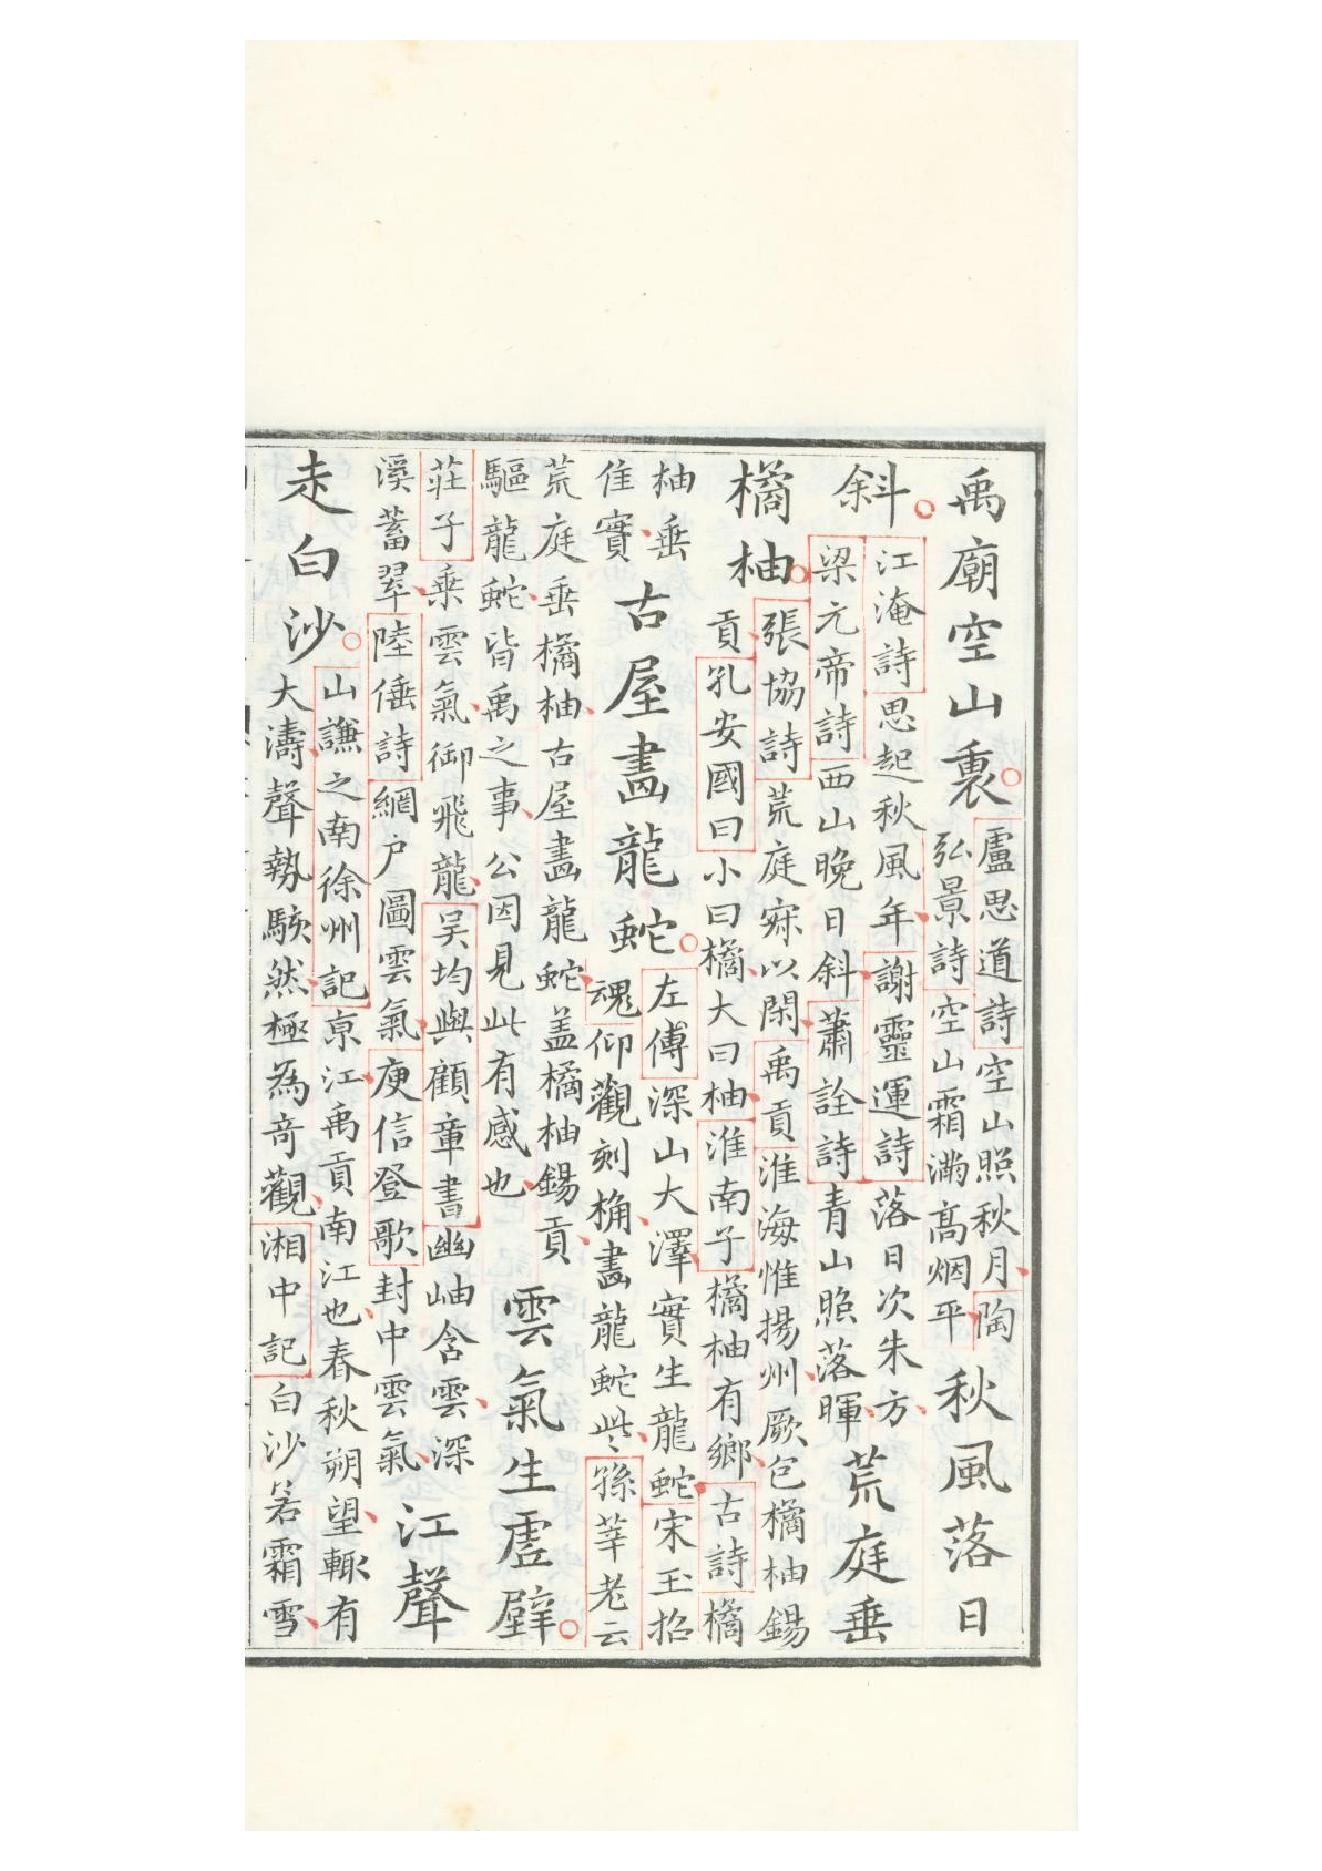 禹廟空山裏
盧思道詩空山照秋月陶
弘景詩空山霜滿高烟平
秋風落日
斜
江淹詩思起秋風年謝靈運詩落日次朱方
梁元帝詩西山晚日斜蕭詮詩青山照落暉
荒庭垂
橘柚
張協詩荒庭寂以閑禹貢淮海惟揚州厥包橘柚錫
貢孔安國曰小曰橘大曰柚淮南子橘柚有鄉古詩橘
柚垂
佳實
古屋畫龍蛇
左傳深山大澤實生龍蛇宋玉招
魂仰觀刻桷畫龍蛇些孫莘老云
荒庭垂橘柚古屋畫龍蛇盖橘柚錫貢
驅龍蛇皆禹之事公因見此有感也
雲氣生虛壁
莊子乗雲氣御飛龍吴均與顧章書幽岫含雲深
溪蓄翠陸倕詩網户圖雲氣庾信登歌封中雲氣
江聲
走白沙
山謙之南徐州記京江禹貢南江也春秋朔望輙有
大濤聲勢駭然極為竒觀湘中記白沙若霜雪